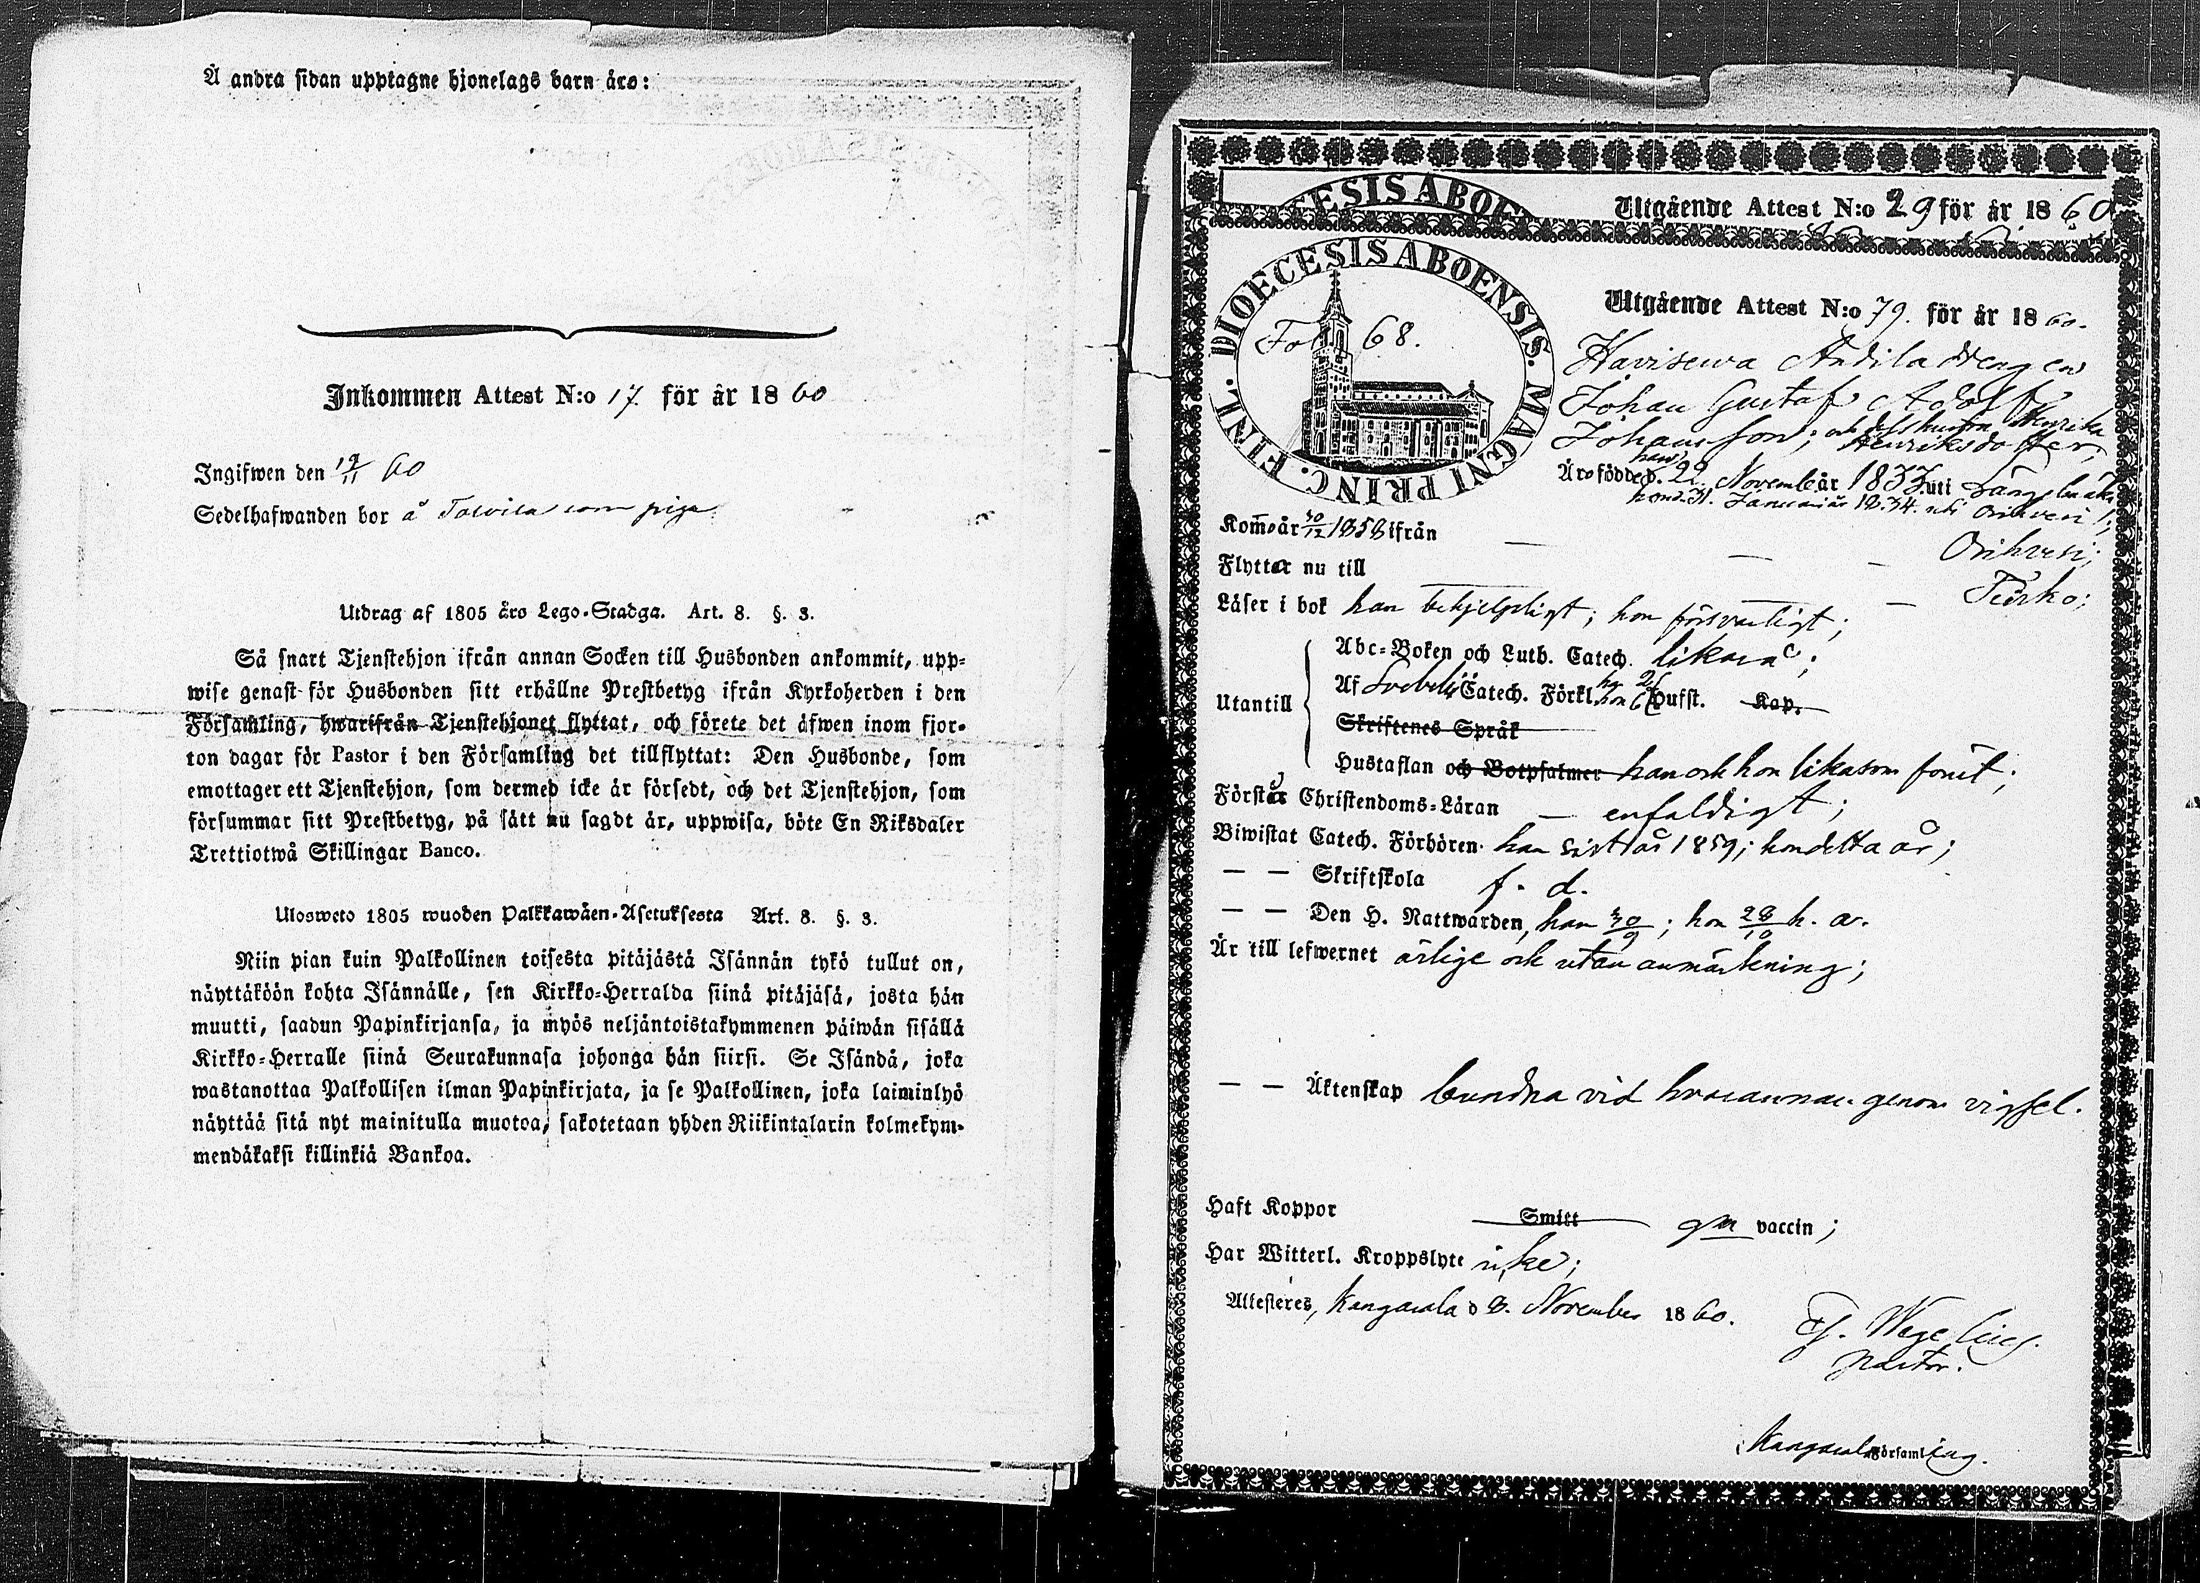 Å andra sidan upptagne hjonelags barn äro:
Inkommen Attest N:o 17. för år 1860
Ingifwen den 19/11 60
Sedelhafwanden bor å Toivila som piga
Utdrag af 1805 års Lego-Stadga. Art. 8. §. 3.
Så snart Tjenstehjon ifrån annan Socken till Husbonden ankommit, upp-
wise genast för Husbonden sitt erhållne Prestbetyg ifrån Kyrkoherden i den
Församling, hwarifrån Tjenstehjonet flyttat, och förete det äfwen inom fjor-
ton dagar för Pastor i den Församling det tillflyttat: Den Husbonde, som
emottager ett Tjenstehjon, som dermed icke är försedt, och det Tjenstehjon, som
försummar sitt Prestbetyg, på sätt nu sagdt är, uppwisa, böte En Riksdaler
Trettiotwå Skillingar Banco.
Ulosweto 1805 wuoden Palkkawäen-Asetuksesta Art. 8. §. 3.
Niin pian kuin Palkollinen toisesta pitäjästä Isännän tykö tullut on,
näyttäköön kohta Isännälle, sen Kirkko-Herralda siinä pitäjäsä, josta hän
muutti, saadun Papinkirjansa, ja myös neljäntoistakymmenen päiwän sisällä
Kirkko-Herralle siinä Seurakunnasa johonga hän siirsi. Se Isändä, joka
wastanottaa Palkollisen ilman Papinkirjata, ja se Palkollinen, joka laiminlyö
näyttää sitä nyt mainitulla muotoa, sakotetaan yhden Riikintalarin kolmekym-
mendäkaksi killinkiä Bankoa.
CESIS ABOE
Utgående Attest N:o 29 för år 1860
DIOECESIS ABOENSIS. MAGNI PRINC. FINL.
Fol. 68.
Utgående Attest N:o 79. för år 1860.
Havisewa Andila drengen
Johan Gustaf Adolf
Johansson; och dess hustru Henrika
Henriksdotter,
Äro födde han d. 22 November år 1833 uti Längelmäki,
hon d. 31. Januari år 1834. uti Orihvesi;
Kommo år 30/12 1858 ifrån — — — Orihvesi;
Flytta nu till — — Teisko;
Läser i bok han behjelpligt; hon försvarligt;
Utantill
Abc-Boken och Luth. Catech. likaså;
Af Svebelii Catech. Förkl. han 2/ hon 6 Hufst. Kap.
Skriftenes Språk
Hustaflan och Botpsalmer han och hon likasom förut;
Förstå Christendoms-Läran — enfaldigt;
Biwistat Catech. Förhören han sist år 1859; hon detta år;
— — Skriftskola f. d.
— — Den H. Nattwarden, han 30/9; hon 28/10 h. a.
Är till lefwernet ärlige och utan anmärkning;
— — Äktenskap bundna vid hvarannan genom vigsel.
Haft Koppor Smitt gm vaccin;
Har Witterl. Kroppslyte icke;
Attesteres, Kangasala d 3. November 1860.
Wegelius.
Pastor.
Kangasala Församling.